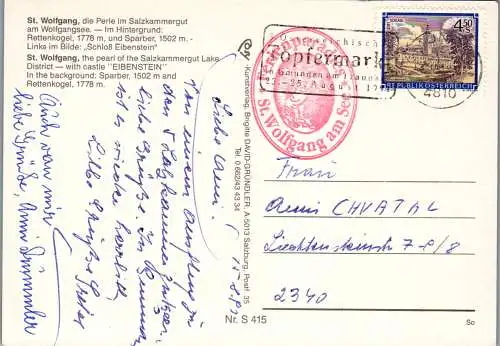 St. Wolfgang, die Perle im Salzkammergut
am Wolfgangsee. — Im Hintergrund:
Rettenkogel, 1778 m, und Sparber, 1502 m. -
Links im Bilde: „Schloß Eibenstein"
St. Wolfgang, the pearl of the Salzkammergut Lake
District — with castle "EIBENSTEIN"
In the background: Sparber, 1502 m and
Rettenkogel, 1778 m.
Liebe Anni!
Von einem Ausflug in
das Salzkammergut
liebe Grüße.
ist es wieder herrlich
Liebe Grüße
Auch von mir
liebe Grüße, Anni
Kunstverlag, Brigitte DAVID-GRÜNDLER, A-5013 Salzburg, Postf. 35
Tel. 0 662/43 43 34
Nr. S 415
St. Wolfgang am See
Töpfermarkt
in Gmunden am Traunsee
4810
4.50
S
REPUBLIK ÖSTERREICH
Frau
Anni CHVATAL
Liechtensteinstr 7-8/8
2340
So